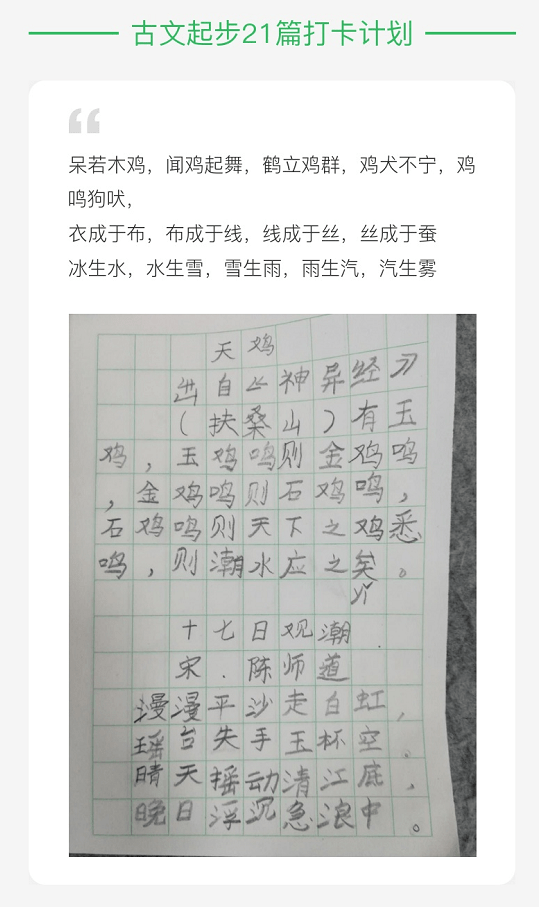 古文起步21篇打卡计划
呆若木鸡，闻鸡起舞，鹤立鸡群，鸡犬不宁，鸡
鸣狗吠，
衣成于布，布成于线，线成于丝，丝成于蚕
冰生水，水生雪，雪生雨，雨生汽，汽生雾
天鸡
出自《神异经》
（扶桑山）有玉
鸡，玉鸡鸣则金鸡鸣
，金鸡鸣则石鸡鸣，
石鸡鸣则天下之鸡悉
鸣，则潮水应之矣。
十七日观潮
宋．陈师道
漫漫平沙走白虹，
瑶台失手玉杯空。
晴天摇动清江底，
晚日浮沉急浪中。